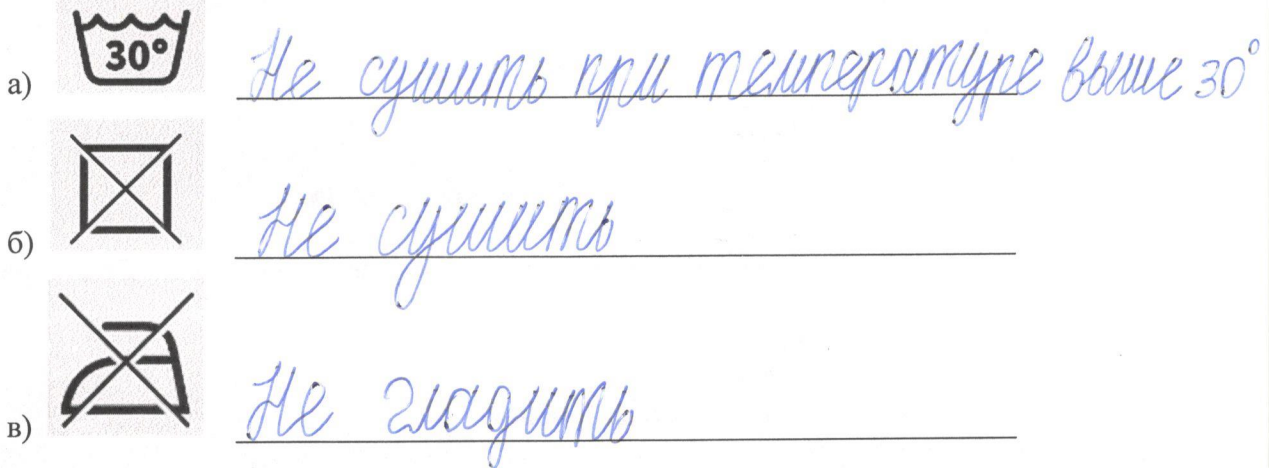 а) 30° Не сушить при температуре выше 30°
б) Не сушить
в) Не гладить